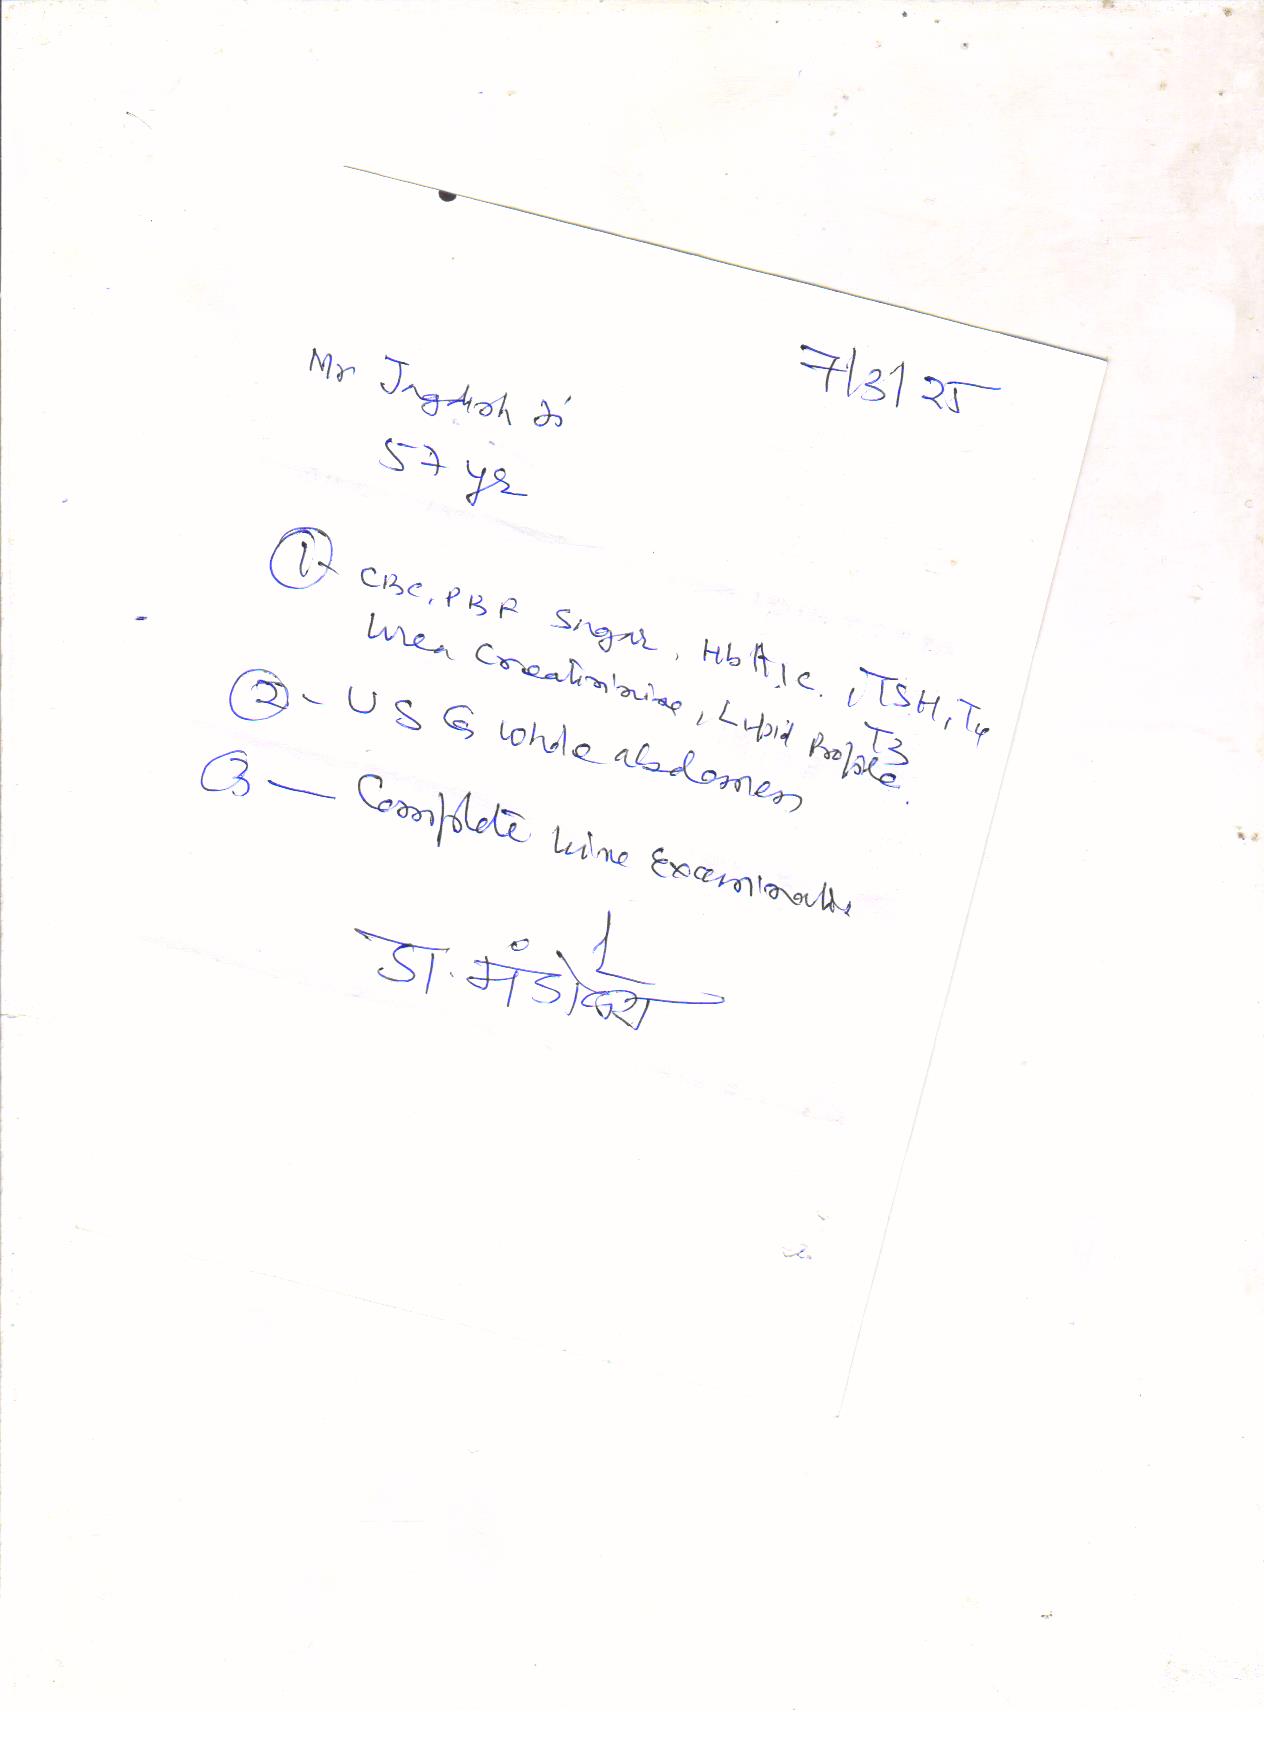 7/3/25
Mr Jagdish Ji
57 yr
① CBC, PBF Sugar, HbA1c, TSH, T4
T3
Urea Creatinine, Lipid Profile.
② - USG Whole abdomen
③ — Complete Urine Examination
डा. मंडोवरा